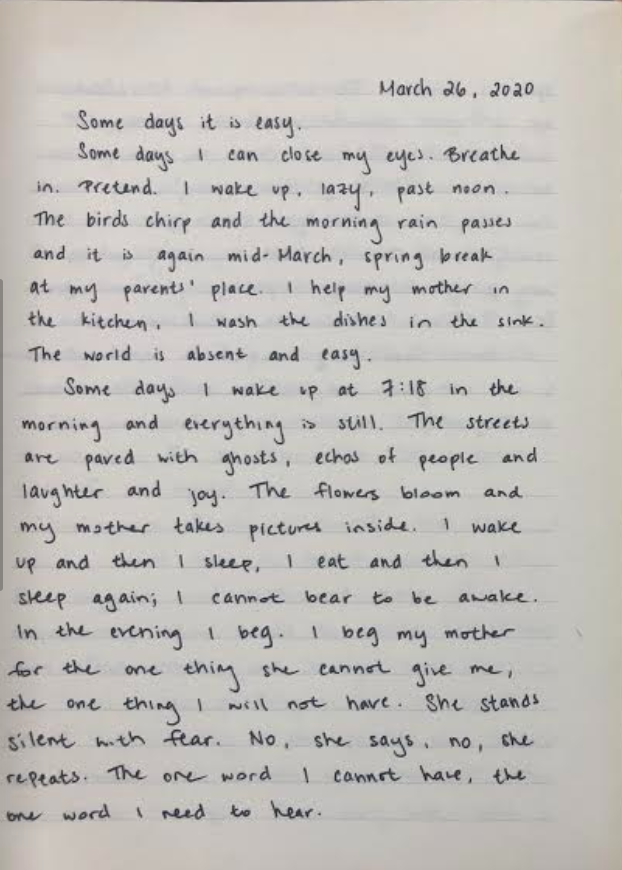 March 26, 2020
Some days it is easy.
Some days I can close my eyes. Breathe
in. Pretend. I wake up, lazy, past noon.
The birds chirp and the morning rain passes
and it is again mid-March, spring break
at my parents' place. I help my mother in
the kitchen, I wash the dishes in the sink.
The world is absent and easy.
Some days I wake up at 7:18 in the
morning and everything is still. The streets
are paved with ghosts, echos of people and
laughter and joy. The flowers bloom and
my mother takes pictures inside. I wake
up and then I sleep, I eat and then I
sleep again; I cannot bear to be awake.
In the evening I beg. I beg my mother
for the one thing she cannot give me,
the one thing I will not have. She stands
silent with fear. No, she says, no, she
repeats. The one word I cannot have, the
one word I need to hear.